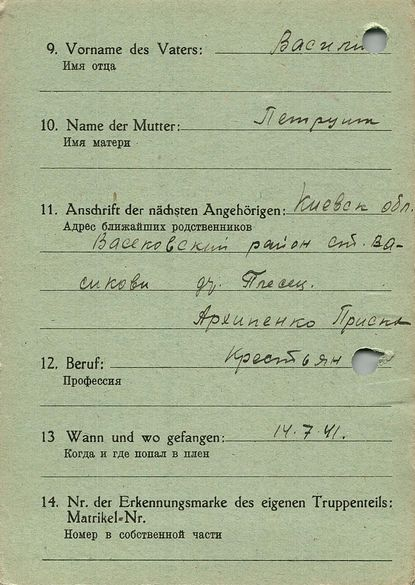 9. Vorname des Vaters: Васили
Имя отца
10. Name der Mutter: Петрущ
Имя матери
11. Anschrift der nächsten Angehörigen: Киевск обл.
Адрес ближайших родственников
Васековский район ст. Ва-
сикови др. Плесец.
Архипенко Приска
12. Beruf: Крестьян
Профессия
13 Wann und wo gefangen: 14.7.41.
Когда и где попал в плен
14. Nr. der Erkennungsmarke des eigenen Truppenteils:
Matrikel-Nr.
Номер в собственной части